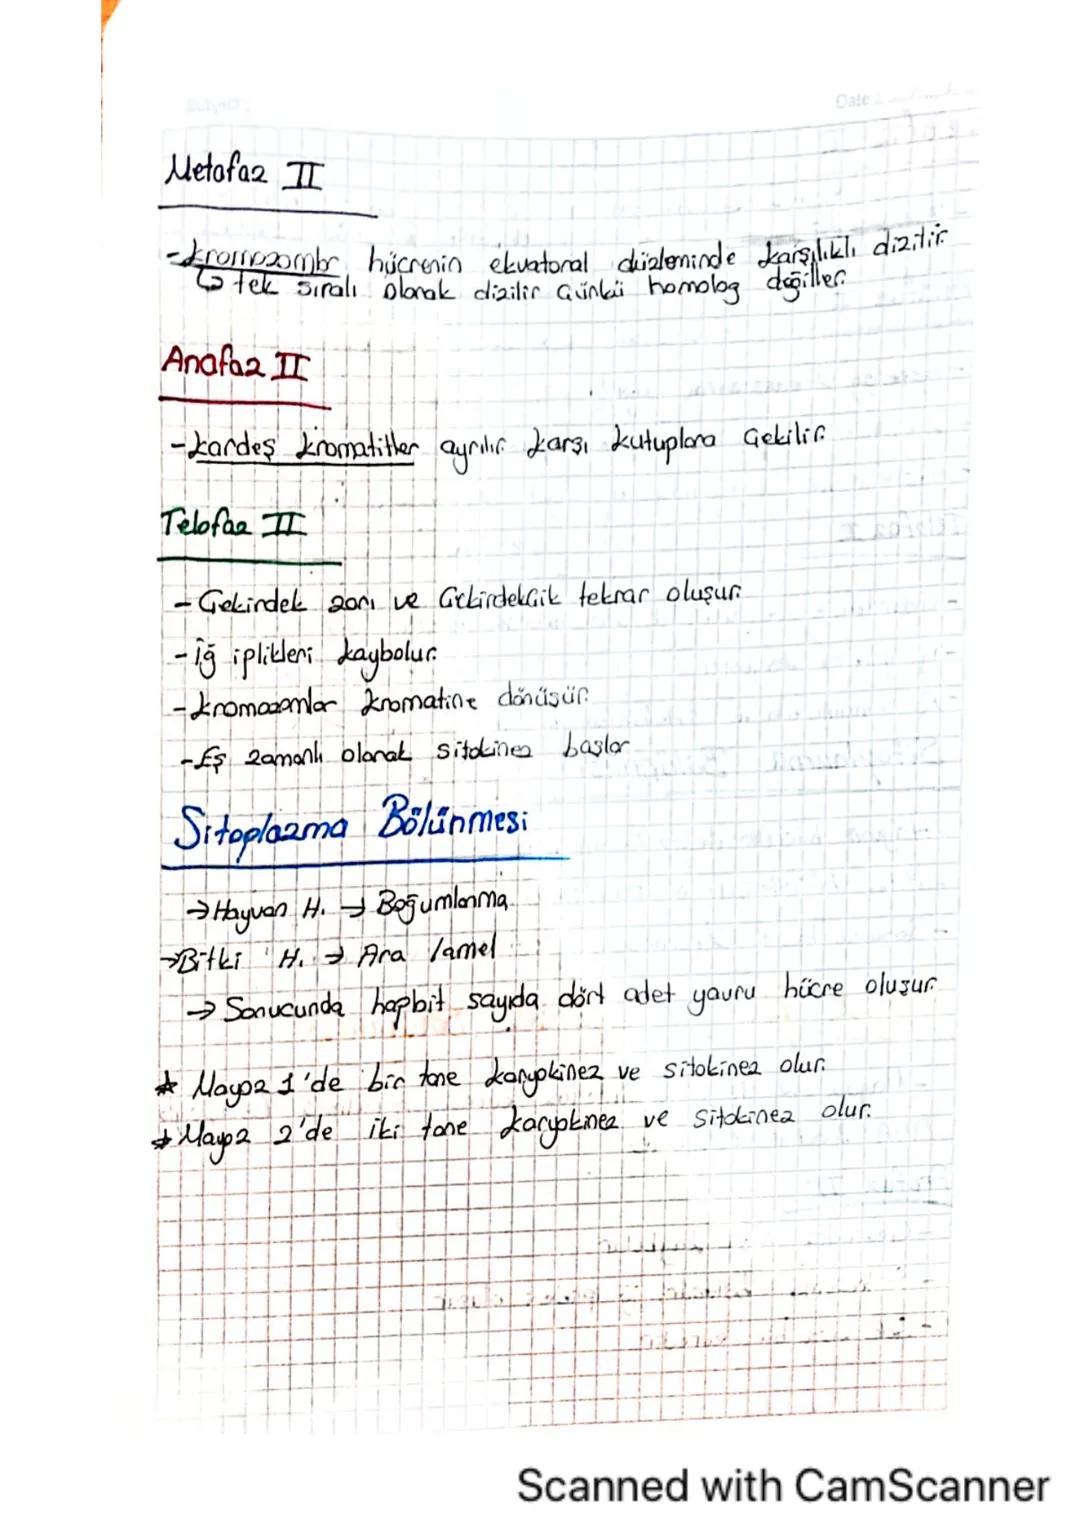 Subject:
Date:
Metafaz II
-kromozomlar hücrenin ekvatoral düzleminde karşılıklı dizilir.
↳ tek sıralı olarak dizilir çünkü homolog değiller.
Anafaz II
-kardeş kromatitler ayrılır. karşı kutuplara çekilir.
Telofaz II
-Çekirdek zarı ve Çekirdekçik tekrar oluşur.
-iğ iplikleri kaybolur.
-kromozomlar kromatine dönüşür.
-Eş zamanlı olarak sitokinez başlar
Sitoplazma Bölünmesi
→Hayvan H. → Boğumlanma.
→Bitki H. → Ara lamel
→ Sonucunda haploit sayıda dört adet yavru hücre oluşur.
★ Mayoz 1'de bir tane karyokinez ve sitokinez olur.
★ Mayoz 2'de iki tane karyokinez ve sitokinez olur.
Scanned with CamScanner